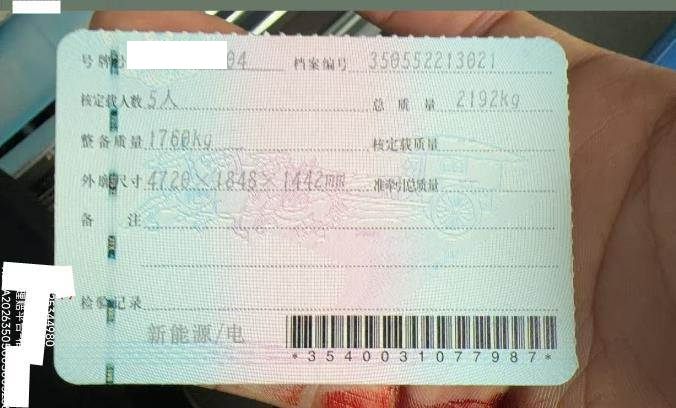 号牌 04 档案编号 350552213021
核定载人数 5人 总质量 2192kg
整备质量 1760kg 核定载质量
外廓尺寸 4720×1848×1442mm 准牵引总质量
备注
检验记录
新能源/电
*3540031077987*